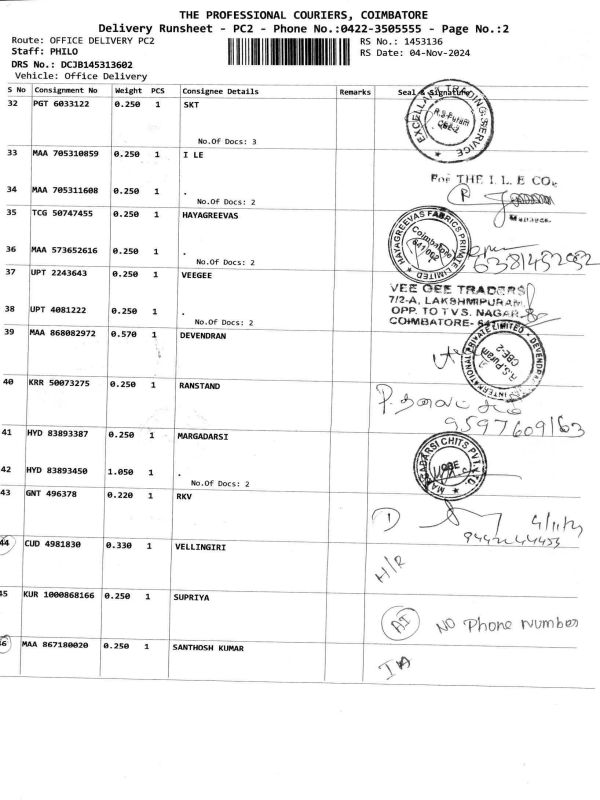 THE PROFESSIONAL COURIERS, COIMBATORE
Delivery Runsheet - PC2 - Phone No.:0422-3505555 - Page No.:2
Route: OFFICE DELIVERY PC2
Staff: PHILO
DRS No.: DCJB145313602
Vehicle: Office Delivery
RS No.: 1453136
RS Date: 04-Nov-2024
S No Consignment No Weight PCS Consignee Details Remarks Seal & Signature
32 PGT 6033122 0.250 1 SKT
No.Of Docs: 3
EXCELLAR TRADING SERVICE
R.S.Puram
CBE-2
33 MAA 705310859 0.250 1 I LE
34 MAA 705311608 0.250 1 .
No.Of Docs: 2
For THE I. L. E CO.,
Manager
35 TCG 50747455 0.250 1 HAYAGREEVAS
HAYAGREEVAS FABRICS PRIVATE LIMITED
Coimbatore
641 002
36 MAA 573652616 0.250 1 .
No.Of Docs: 2
37 UPT 2243643 0.250 1 VEEGEE
VEE GEE TRADERS
7/2-A, LAKSHMIPURAM,
OPP. TO TVS. NAGAR
COIMBATORE-
38 UPT 4081222 0.250 1 .
No.Of Docs: 2
39 MAA 868082972 0.570 1 DEVENDRAN
INTERNATIONAL PRIVATE LIMITED
R.S. Puram
CBE-2
40 KRR 50073275 0.250 1 RANSTAND
9597609163
41 HYD 83893387 0.250 1 MARGADARSI
MARGADARSI CHITS PVT. LTD.
CBE
42 HYD 83893450 1.050 1 .
No.Of Docs: 2
43 GNT 496378 0.220 1 RKV
44 CUD 4981830 0.330 1 VELLINGIRI
H/R
45 KUR 1000868166 0.250 1 SUPRIYA
AI NO Phone number
46 MAA 867180020 0.250 1 SANTHOSH KUMAR